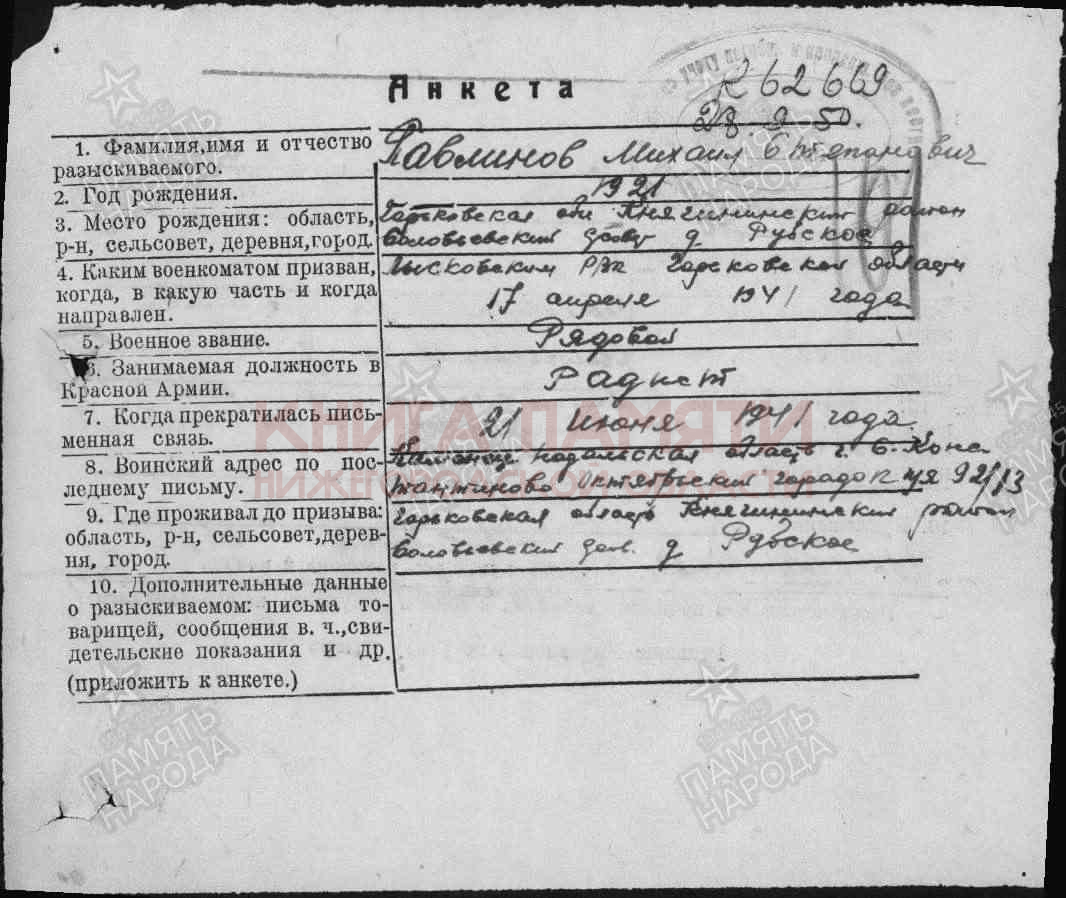 Анкета
К 62669
28.9.50.
1. Фамилия,имя и отчество
разыскиваемого.
Павлинов Михаил Степанович
2. Год рождения.
1921
3. Место рождения: область,
р-н, сельсовет, деревня,город.
Горьковская обл Княгининский район
Соловьевский д Рубское
4. Каким военкоматом призван,
когда, в какую часть и когда
направлен.
Лысковским РВК Горьковской области
17 апреля 1941 года
5. Военное звание.
Рядовой
6. Занимаемая должность в
Красной Армии.
Радист
7. Когда прекратилась пись-
менная связь.
21 Июня 1941 года.
8. Воинский адрес по пос-
леднему письму.
Каменец подольская область г. С. Конс
тантиново Октябрьский городок п/я 92/13
9. Где проживал до призыва:
область, р-н, сельсовет,дерев-
ня, город.
Горьковская область Княгининский район
Соловьевский д Рубское
10. Дополнительные данные
о разыскиваемом: письма то-
варищей, сообщения в. ч.,сви-
детельские показания и др.
(приложить к анкете.)
КНИГА ПАМЯТИ
НИЖЕГОРОДСКОЙ ОБЛАСТИ
ПАМЯТЬ
НАРОДА
ПАМЯТЬ
НАРОДА
ПАМЯТЬ
НАРОДА
ПАМЯТЬ
НАРОДА